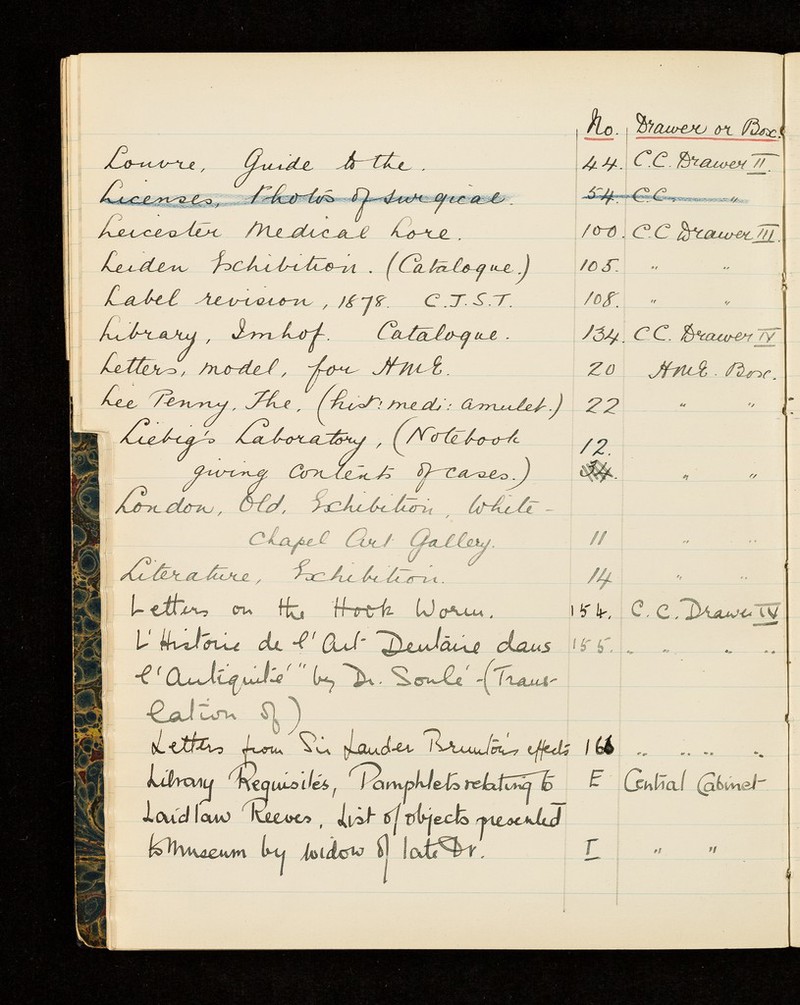 No. Drawer or Box.
Louvre, Guide to the. 44. C.C. Drawer II.
Licenses, Photos of surgical. 54. C.C. "
Leicester Medical Lore. 100. C.C Drawer III.
Leiden Exhibition. (Catalogue.) 105. " "
Label revision, 1878. C.J.S.T. 108. " "
Library, Imhof. Catalogue. 134. C C. Drawer IV
Letters, model, for HME. 20 HME. Box.
Lee Penny, The, (hist: medi: amulet.) 22 " "
Liebig's Laboratory, (Notebook 12.
giving contents of cases.) 34. " "
London, Old, Exhibition, White-
chapel Art Gallery. 11 " "
Literature, Exhibition. 14 " "
Letters on the Hook Worm. 154. C. C. Drawer IV
L'Histoire de l'Art Dentaire dans 155. " " " "
l'Antiquité" by Dr. Soulé -(Trans-
lation of)
Letters from Sir Lauder Brunton's effects 166 " " " "
Library Requisites, Pamphlets relating to E Central Cabinet
Laidlaw Reeves, List of objects presented
to Museum by widow of late Dr. I " "